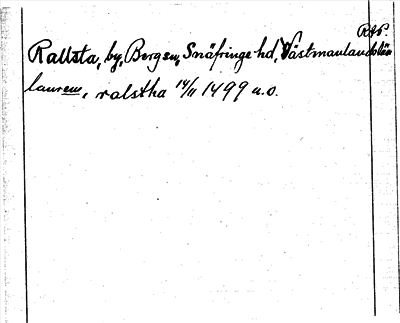 RAP.
Rallsta, by, Bergs sn, Snäfringe hd, Västmanlands län
laurens, ralstha 14/11 1499 u.o.